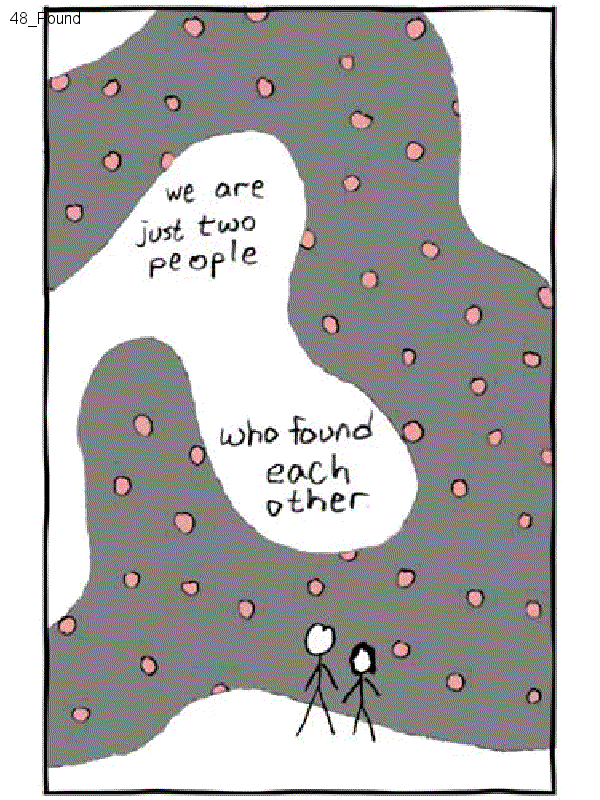 48_Found
we are
just two
people
who found
each
other